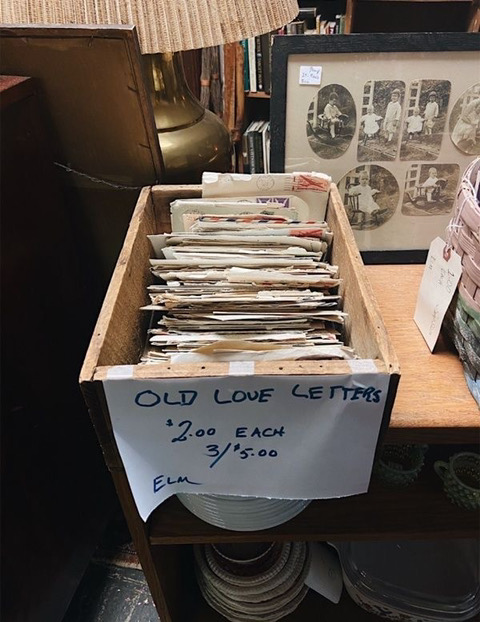 OLD LOVE LETTERS
$2.00 EACH
3/$5.00
ELM